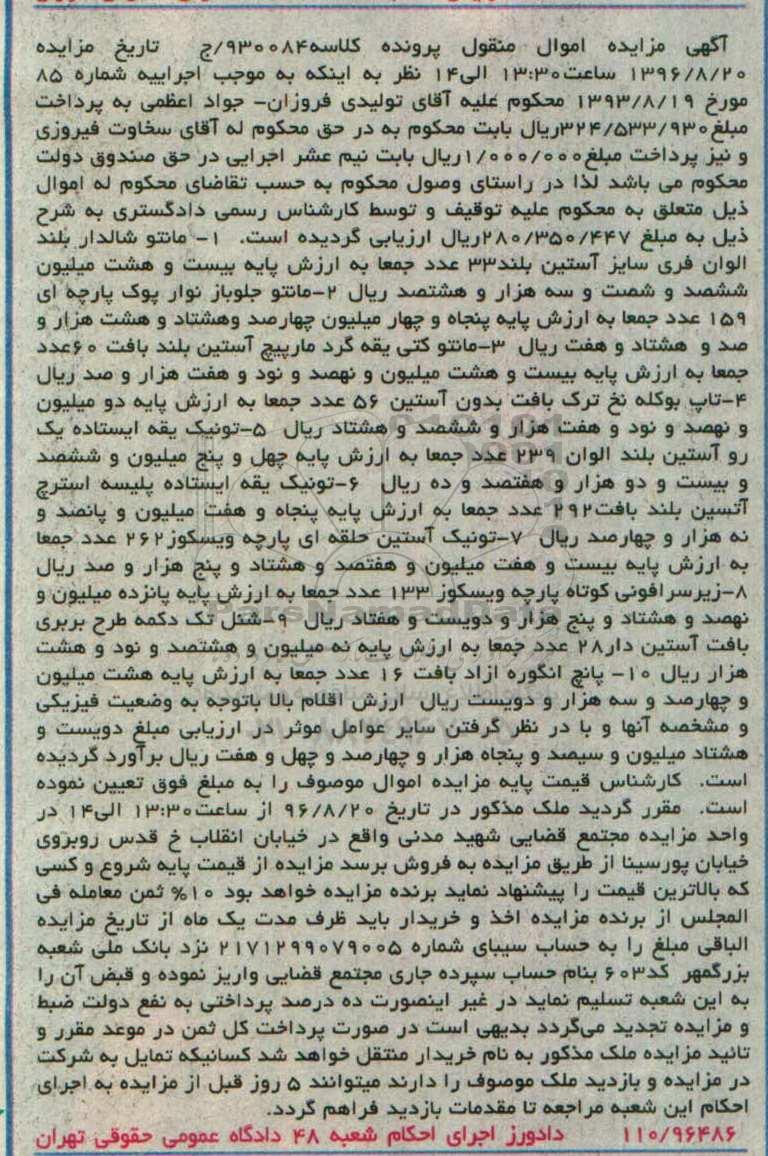 آگهی مزایده اموال منقول پرونده کلاسه۹۳۰۰۸۴/ج تاریخ مزایده
۱۳۹۶/۸/۲۰ ساعت۱۳:۳۰ الی۱۴ نظر به اینکه به موجب اجراییه شماره ۸۵
مورخ ۱۳۹۳/۸/۱۹ محکوم علیه آقای تولیدی فروزان- جواد اعظمی به پرداخت
مبلغ۳۲۴/۵۳۳/۹۳۰ریال بابت محکوم به در حق محکوم له آقای سخاوت فیروزی
و نیز پرداخت مبلغ۱/۰۰۰/۰۰۰ریال بابت نیم عشر اجرایی در حق صندوق دولت
محکوم می باشد لذا در راستای وصول محکوم به حسب تقاضای محکوم له اموال
ذیل متعلق به محکوم علیه توقیف و توسط کارشناس رسمی دادگستری به شرح
ذیل به مبلغ ۲۸۰/۳۵۰/۴۴۷ریال ارزیابی گردیده است. ۱- مانتو شالدار بلند
الوان فری سایز آستین بلند۳۳ عدد جمعا به ارزش پایه بیست و هشت میلیون
ششصد و شصت و سه هزار و هشتصد ریال ۲-مانتو جلوباز نوار پوک پارچه ای
۱۵۹ عدد جمعا به ارزش پایه پنجاه و چهار میلیون چهارصد وهشتاد و هشت هزار و
صد و هشتاد و هفت ریال ۳-مانتو کتی یقه گرد مارپیچ آستین بلند بافت ۶۰عدد
جمعا به ارزش پایه بیست و هشت میلیون و نهصد و نود و هفت هزار و صد ریال
۴-تاپ بوکله نخ ترک بافت بدون آستین ۵۶ عدد جمعا به ارزش پایه دو میلیون
و نهصد و نود و هفت هزار و ششصد و هشتاد ریال ۵-تونیک یقه ایستاده یک
رو آستین بلند الوان ۲۳۹ عدد جمعا به ارزش پایه چهل و پنج میلیون و ششصد
و بیست و دو هزار و هفتصد و ده ریال ۶-تونیک یقه ایستاده پلیسه استرچ
آتسین بلند بافت۲۹۲ عدد جمعا به ارزش پایه پنجاه و هفت میلیون و پانصد و
نه هزار و چهارصد ریال ۷-تونیک آستین حلقه ای پارچه ویسکوز۲۶۲ عدد جمعا
به ارزش پایه بیست و هفت میلیون و هفتصد و هشتاد و پنج هزار و صد ریال
۸-زیرسرافونی کوتاه پارچه ویسکوز ۱۳۳ عدد جمعا به ارزش پایه پانزده میلیون و
نهصد و هشتاد و پنج هزار و دویست و هفتاد ریال ۹-شنل تک دکمه طرح بربری
بافت آستین دار۲۸ عدد جمعا به ارزش پایه نه میلیون و هشتصد و نود و هشت
هزار ریال ۱۰- پانچ انگوره ازاد بافت ۱۶ عدد جمعا به ارزش پایه هشت میلیون
و چهارصد و سه هزار و دویست ریال ارزش اقلام بالا باتوجه به وضعیت فیزیکی
و مشخصه آنها و با در نظر گرفتن سایر عوامل موثر در ارزیابی مبلغ دویست و
هشتاد میلیون و سیصد و پنجاه هزار و چهارصد و چهل و هفت ریال برآورد گردیده
است. کارشناس قیمت پایه مزایده اموال موصوف را به مبلغ فوق تعیین نموده
است. مقرر گردید ملک مذکور در تاریخ ۹۶/۸/۲۰ از ساعت۱۳:۳۰ الی۱۴ در
واحد مزایده مجتمع قضایی شهید مدنی واقع در خیابان انقلاب خ قدس روبروی
خیابان پورسینا از طریق مزایده به فروش برسد مزایده از قیمت پایه شروع و کسی
که بالاترین قیمت را پیشنهاد نماید برنده مزایده خواهد بود ۱۰% ثمن معامله فی
المجلس از برنده مزایده اخذ و خریدار باید ظرف مدت یک ماه از تاریخ مزایده
الباقی مبلغ را به حساب سیبای شماره ۲۱۷۱۲۹۹۰۷۹۰۰۵ نزد بانک ملی شعبه
بزرگمهر کد۶۰۳ بنام حساب سپرده جاری مجتمع قضایی واریز نموده و قبض آن را
به این شعبه تسلیم نماید در غیر اینصورت ده درصد پرداختی به نفع دولت ضبط
و مزایده تجدید می‌گردد بدیهی است در صورت پرداخت کل ثمن در موعد مقرر و
تائید مزایده ملک مذکور به نام خریدار منتقل خواهد شد کسانیکه تمایل به شرکت
در مزایده و بازدید ملک موصوف را دارند میتوانند ۵ روز قبل از مزایده به اجرای
احکام این شعبه مراجعه تا مقدمات بازدید فراهم گردد.
۱۱۰/۹۶۴۸۶ دادورز اجرای احکام شعبه ۴۸ دادگاه عمومی حقوقی تهران
ParsNamadData